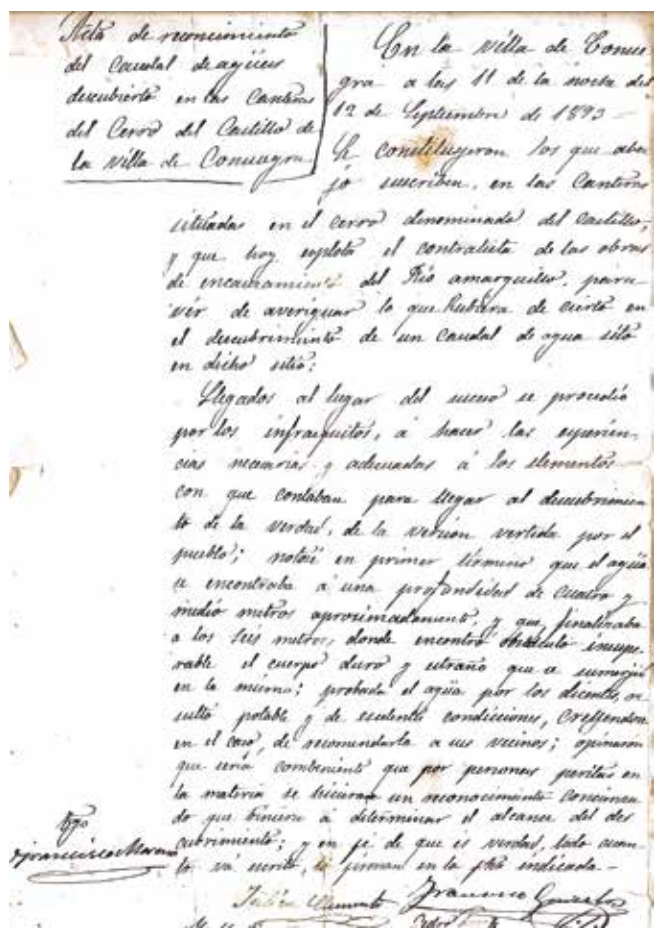 Acta de reconocimiento
del Caudal de agües
descubierto en las Canteras
del Cerro del Castillo de
la villa de Consuegra
En la villa de Consue
gra a las 11 de la noche del
12 de Septiembre de 1893 —
Se constituyeron los que aba
jo suscriben, en las Canteras
situadas en el cerro denominado del castillo,
y que hoy esplota el contratista de las obras
de encauzamiento del Río amarguillo, para
vér de averiguar lo que hubiera de cierto en
el descubrimiento de un caudal de agua sito
en dicho sitio;
Llegados al lugar del suceso se procedió
por los infraescritos, á hacer las esperien
cias necesarias y adecuadas á los elementos
con que contaban para llegar al descubrimien
to de la verdad, de la version vertida por el
pueblo; notose en primer término que el agua
se encontraba á una profundidad de cuatro y
medio metros aprosimadamente, y que finalizaba
a los seis metros, donde encontró obstaculo insupe
rable el cuerpo duro y estraño que se sumerjió
en la misma; probada el agua por los dicentes, re
sultó potable y de escelentes condicciones, creyendose
en el caso, de recomendarla a sus vecinos; opinaron
que seria combeniente que por personas peritas en
la materia se hiciera un reconocimiento concienzu
do que biniera á determinar el alcance del des
cubrimiento; y en fé de que és verdad, todo cuan
to vá escrito, lo firman en la fha indicada —
Tgo
Francisco Moreno
Julián Francisco